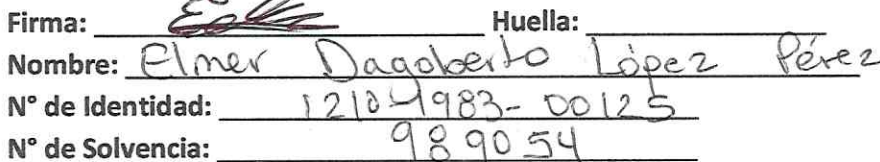 Firma: Huella:
Nombre: Elmer Dagoberto López Pérez
N° de Identidad: 1210-1983-00125
N° de Solvencia: 989054